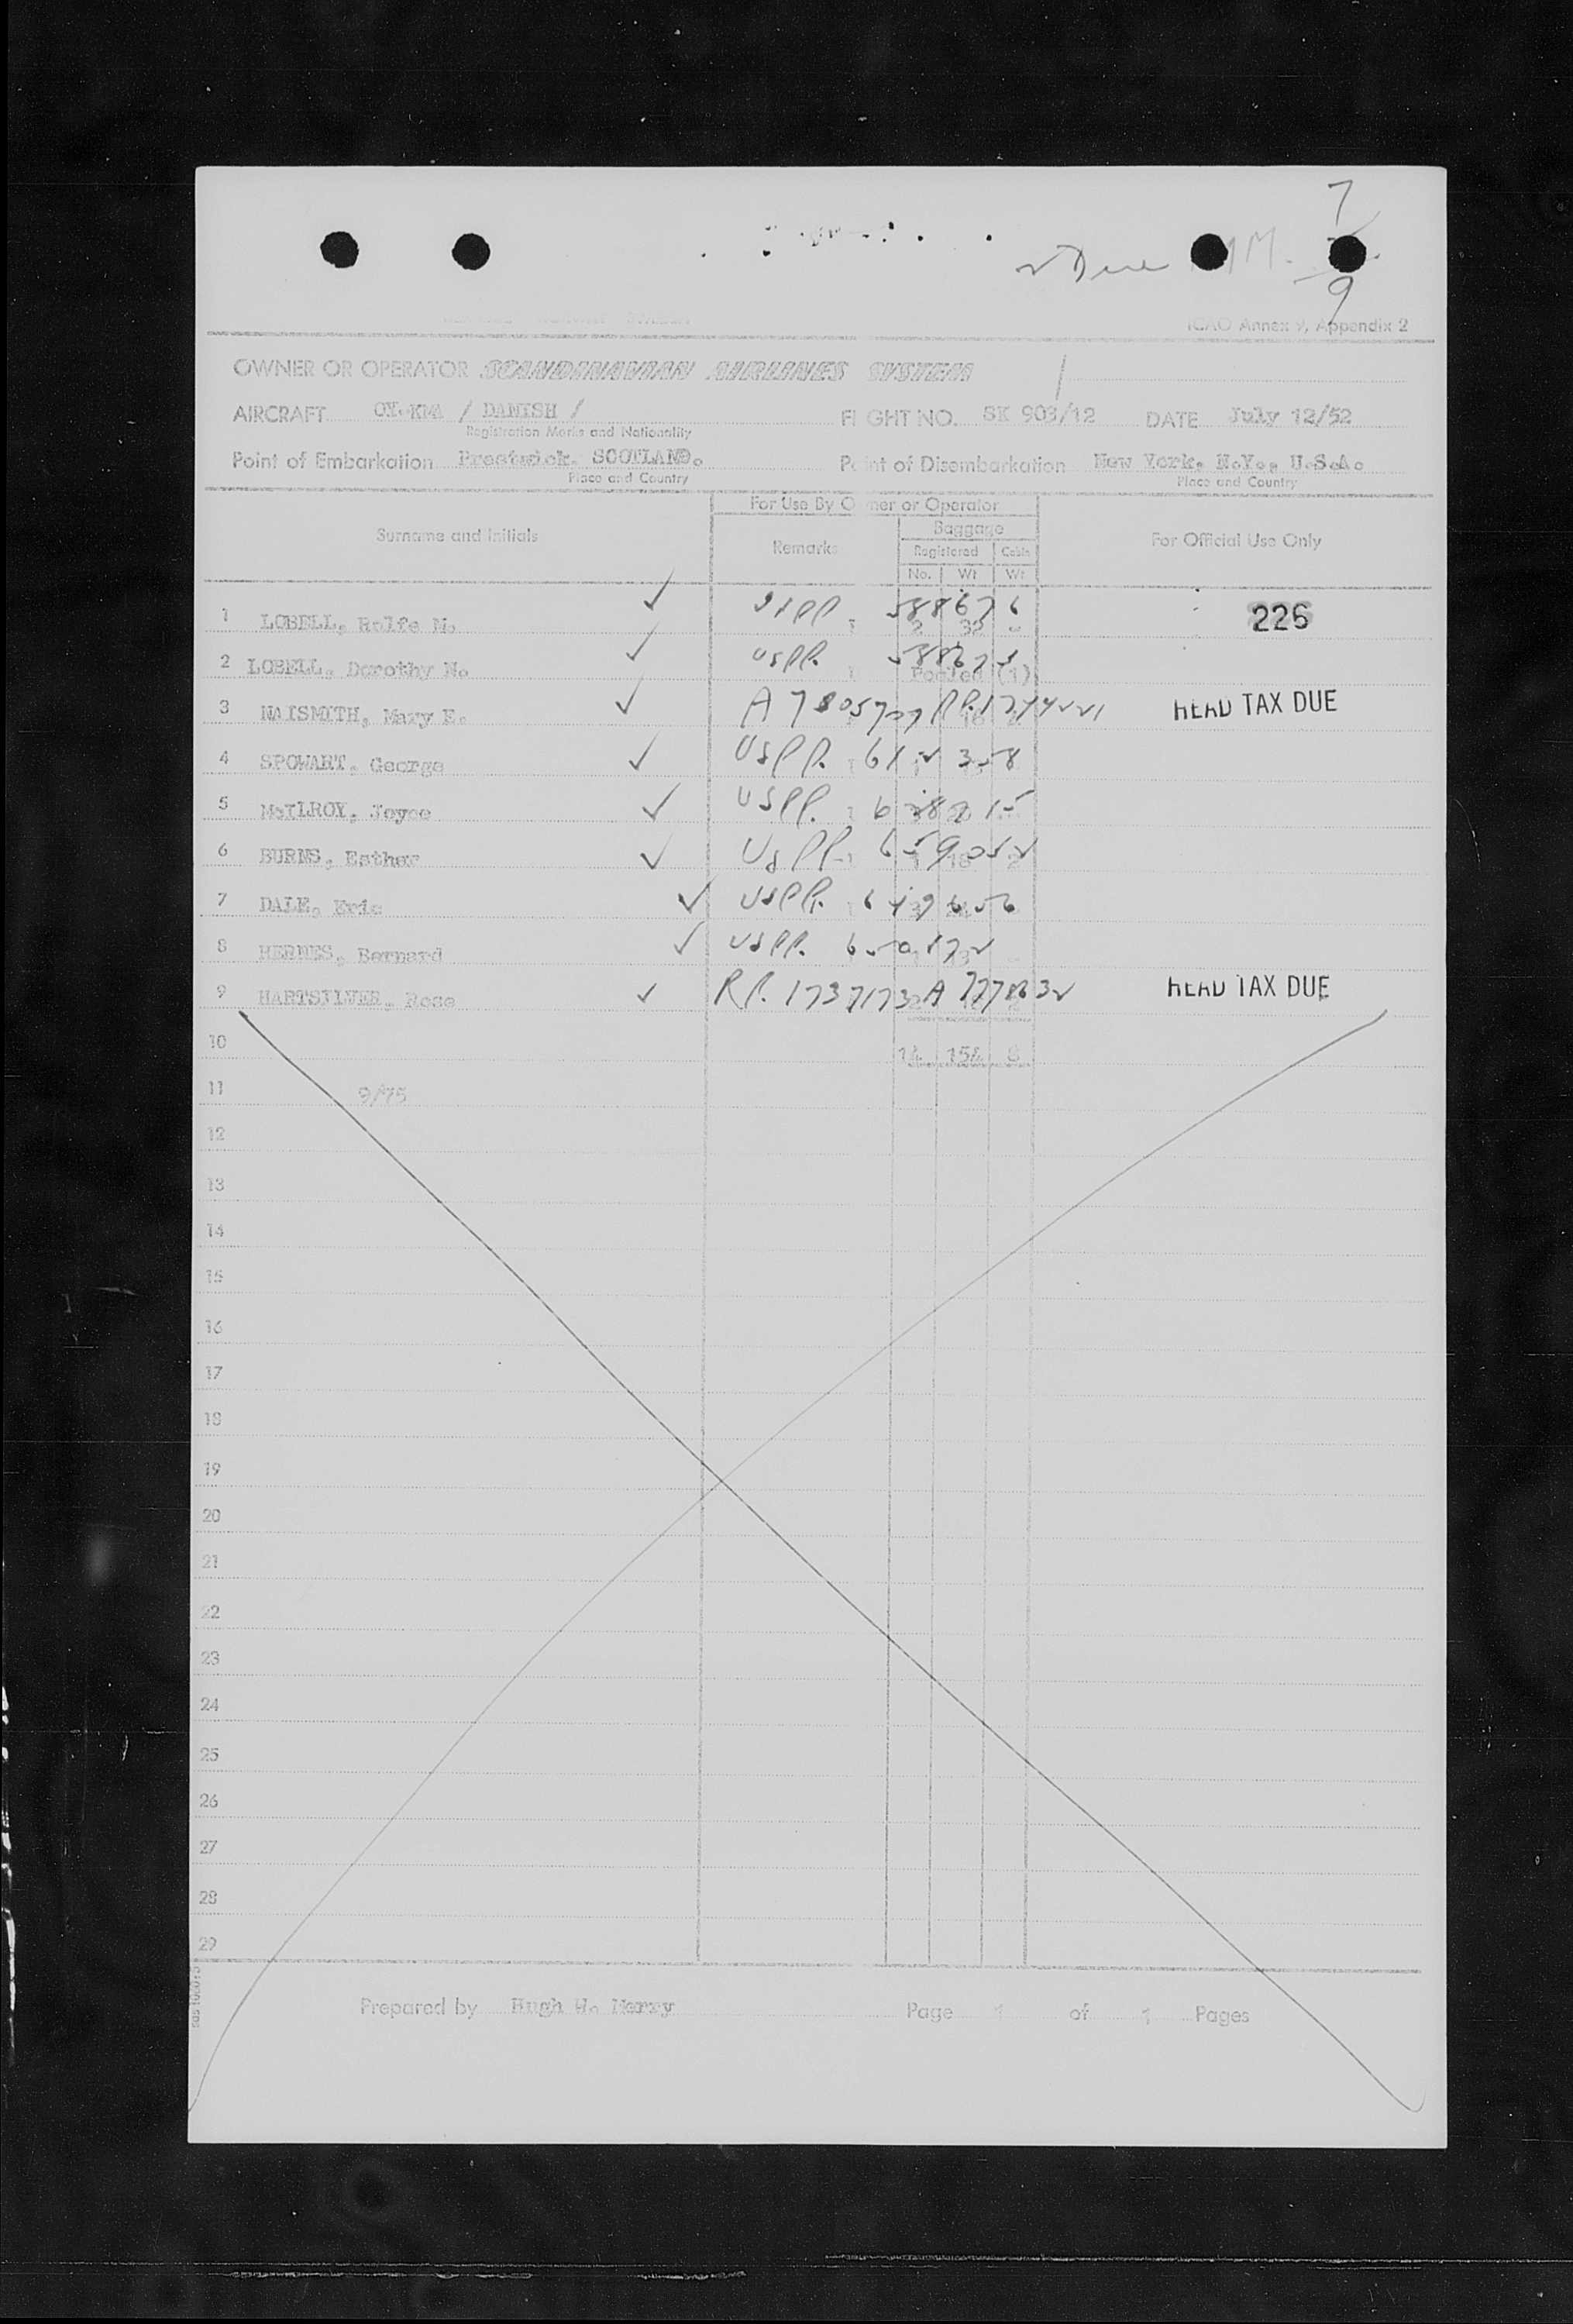 7
2 Due
9
ICAO Annex 9, Appendix 2
OWNER OR OPERATOR SCANDINAVIAN AIRLINES SYSTEM
AIRCRAFT OY-KMA / DANISH / FLIGHT NO. SK 903/12 DATE July 12/52
Registration Marks and Nationality
Point of Embarkation Prestwick, SCOTLAND. Point of Disembarkation New York, N.Y., U.S.A.
Place and Country Place and Country
For Use By Owner or Operator
Surname and Initials Remarks Baggage For Official Use Only
Registered Cabin
No. Wt Wt
1 LOBELL, Rolfe N. USPP. 588676 2 32 226
2 LOBELL, Dorothy N. USPP. Pooled (1)
3 NAISMITH, Mary E. HEAD TAX DUE
4 SPOWART, George USPP. 612358
5 McILROY, Joyce USPP.
6 BURNS, Esther USPP. 659052
7 DALE, Eric USPP.
8 HERNES, Bernard USPP. 650172
9 HARTSILVER, Rose HEAD TAX DUE
10 14 154 8
11 9/75
12
13
14
15
16
17
18
19
20
21
22
23
24
25
26
27
28
29
Prepared by Hugh W. Merry Page 1 of 1 Pages